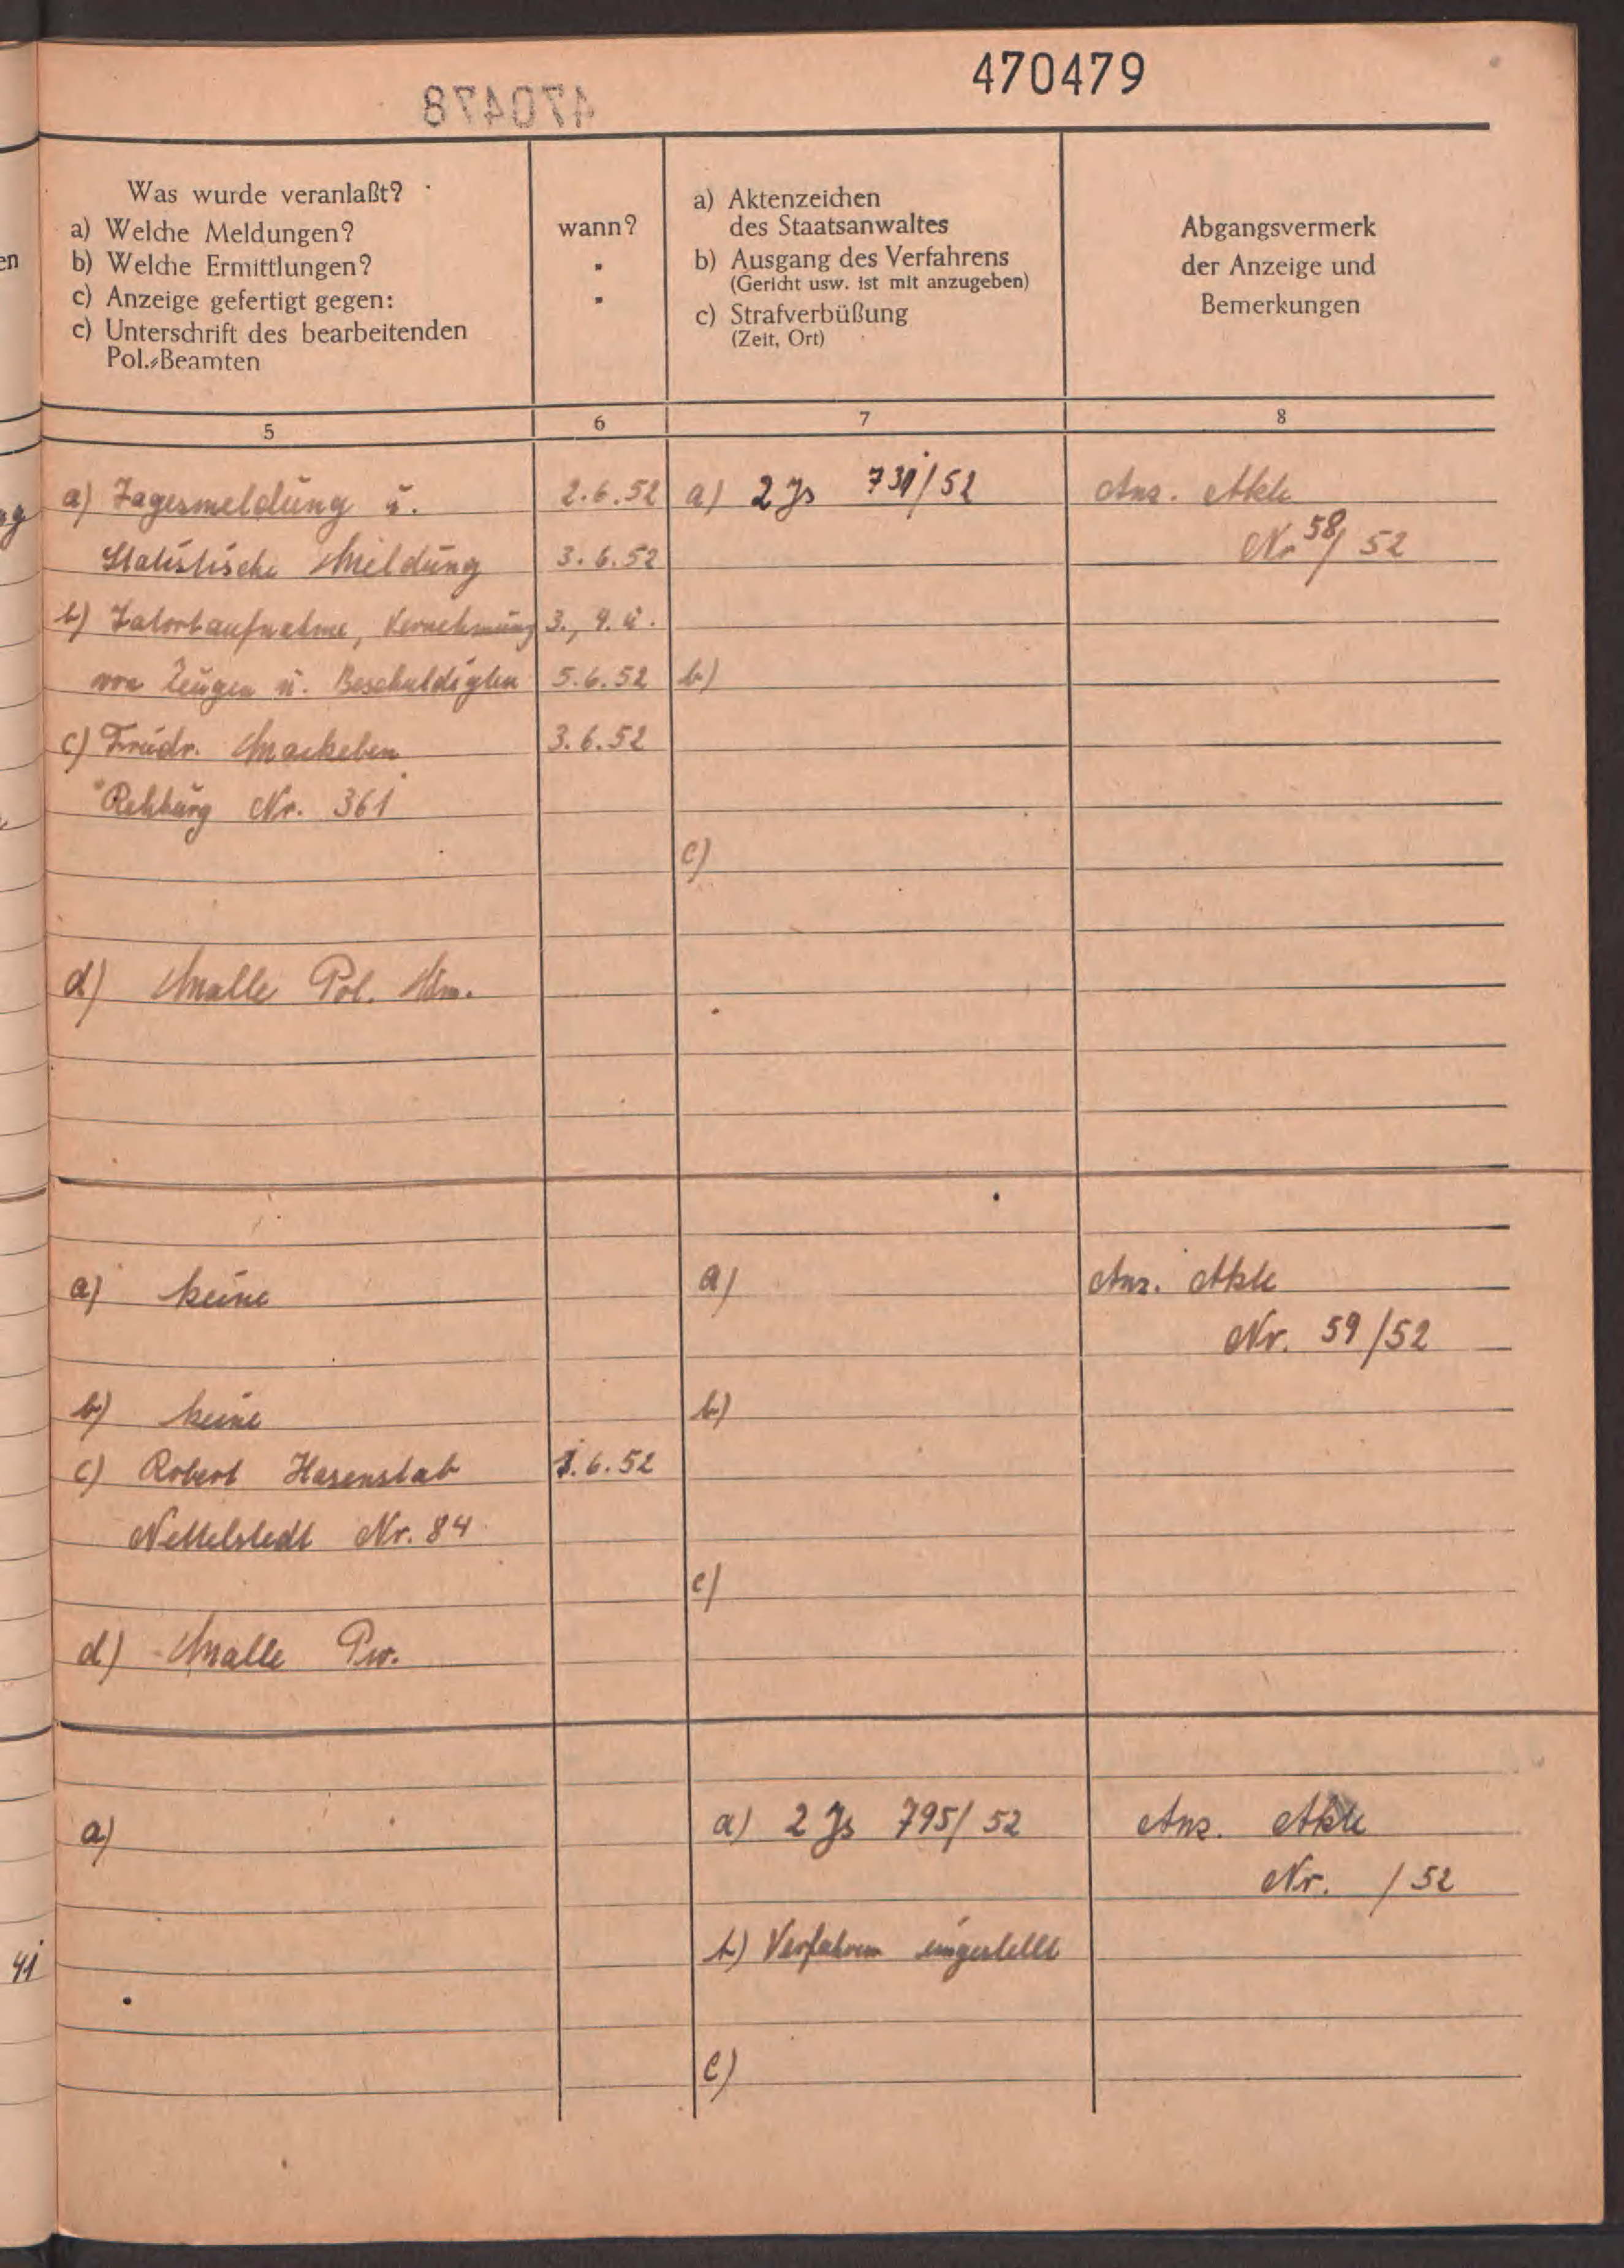 470479
470478
Was wurde veranlaßt?
a) Welche Meldungen?
b) Welche Ermittlungen?
c) Anzeige gefertigt gegen:
c) Unterschrift des bearbeitenden
Pol.-Beamten
wann?
a) Aktenzeichen
des Staatsanwaltes
b) Ausgang des Verfahrens
(Gericht usw. ist mit anzugeben)
c) Strafverbüßung
(Zeit, Ort)
Abgangsvermerk
der Anzeige und
Bemerkungen
5 6 7 8
en
a) Tagesmeldung u. 2.6.52 a) 2 Js 731/52 Anz. Akte
Statistische Meldung 3.6.52 Nr 58/52
b) Tatortaufnahme, Vernehmung 3., 4. u.
von Zeugen u. Beschuldigten 5.6.52 b)
c) Friedr. Mackeben 3.6.52
Rehburg Nr. 361
c)
d) Malle Pol.
a) keine a) Anz. Akte
Nr. 59/52
b) keine b)
c) Robert Hasenstab .6.52
Nettelstedt Nr. 84
c)
d) Malle Pw.
a) a) 2 Js 795/52 Anz. Akte
Nr. /52
b) Verfahren eingestellt
41
c)